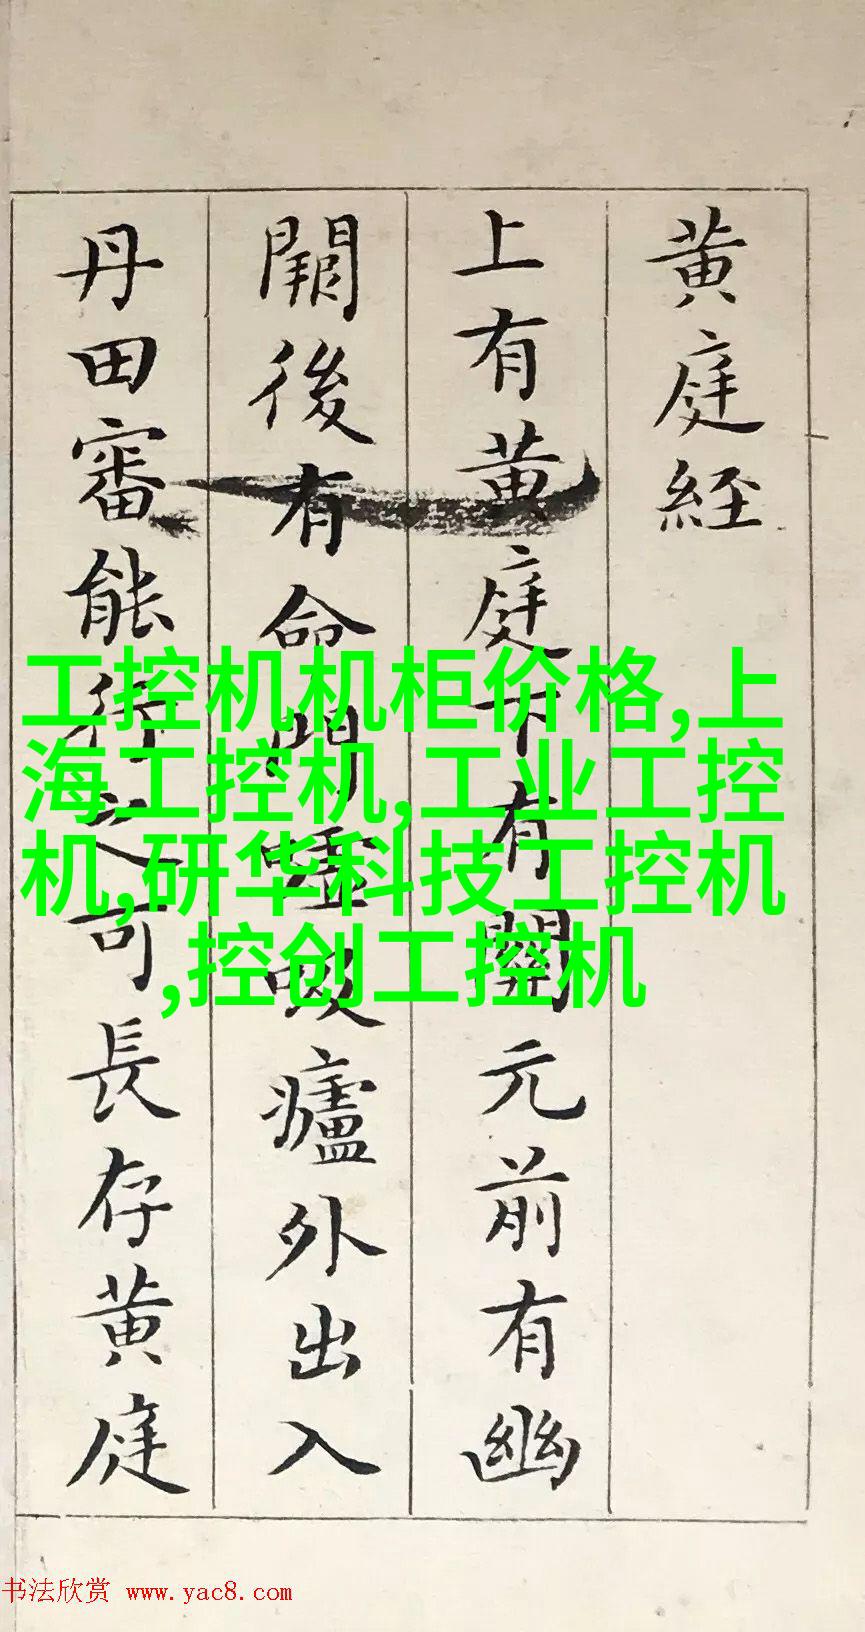 黄庭経
上有黄庭下有關元前有幽
闕後有命門嘘吸廬外出入
丹田審能行之可長存黄庭
工控机机柜价格,上
海工控机,工业工控
机,研华科技工控机
,控创工控机
书法欣赏 www.yac8.com